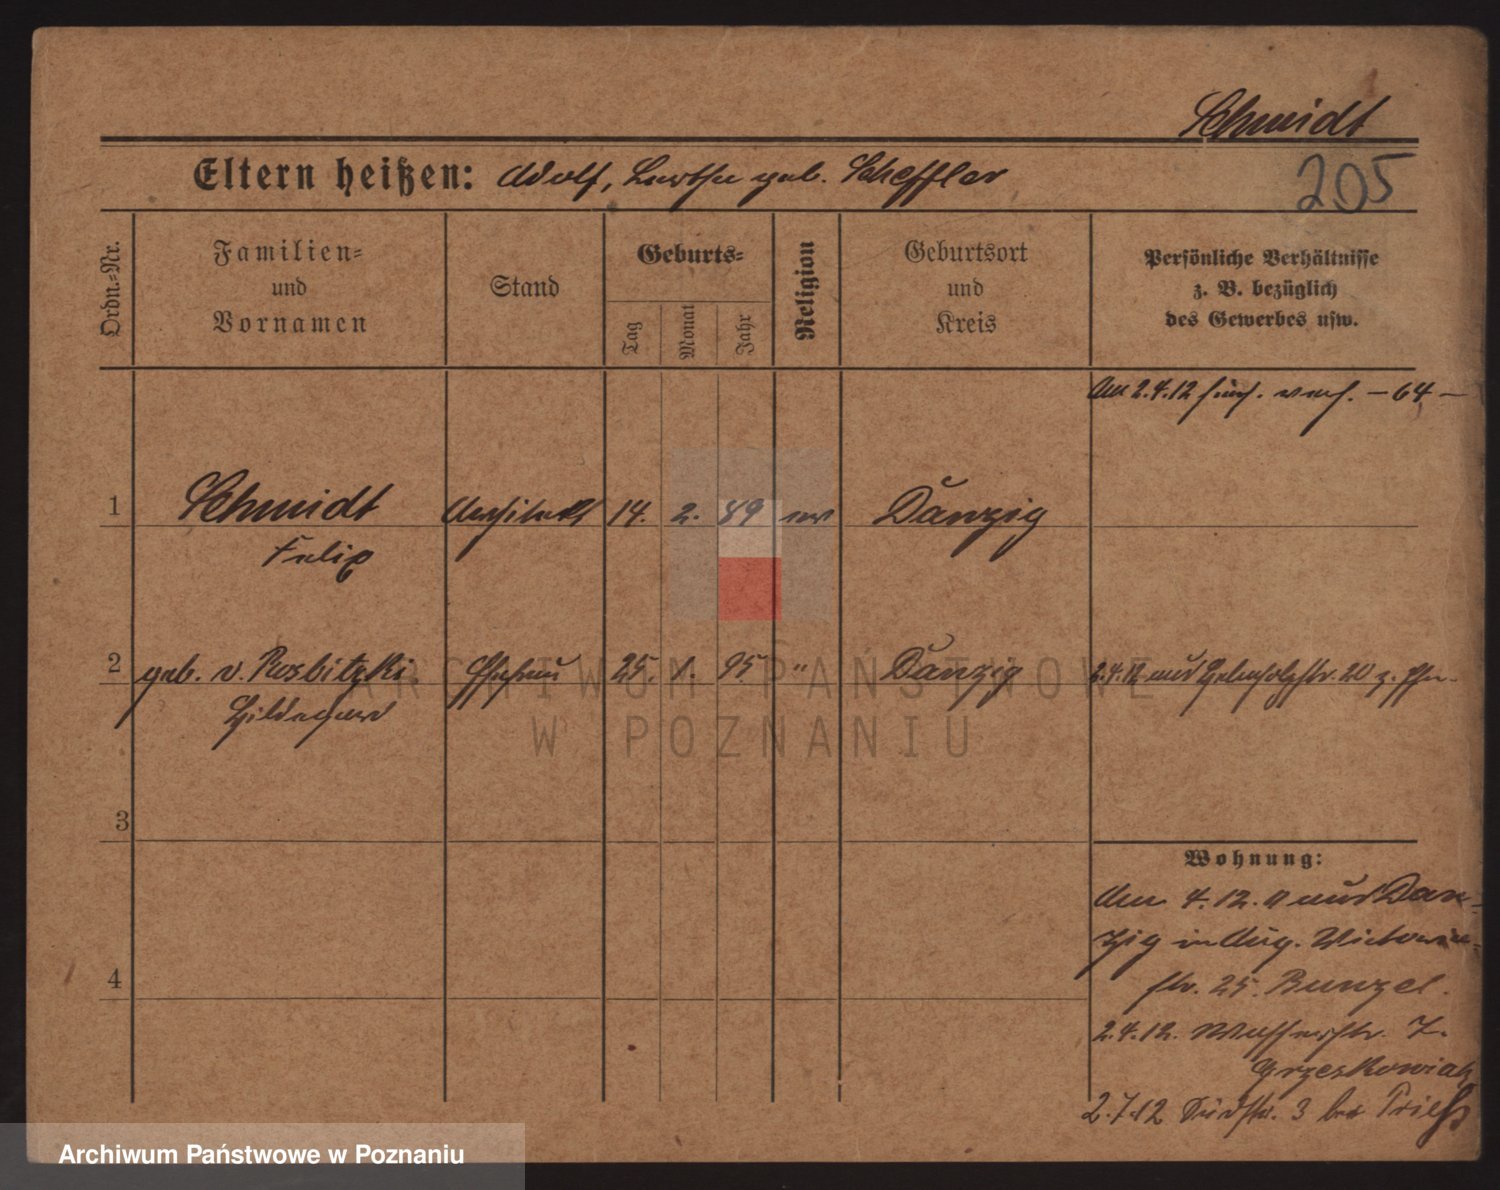 Schmidt
Eltern heißen: Adolf, Berthe geb. Scheffler
205
Ordn.=Nr.
Familien=
und
Vornamen
Stand
Geburts=
Tag
Monat
Jahr
Religion
Geburtsort
und
Kreis
Persönliche Verhältnisse
z. B. bezüglich
des Gewerbes usw.
Am 2.4.12 verh. – 64 –
1
Schmidt
Felix
Architekt
14.
2.
89
ev
Danzig
2
geb. v. Rosbitzki
Hildegard
Ehefrau
25.
1.
95
"
Danzig
2.4.12 aus 20 z.
3
Wohnung:
Am 4.12.11 aus Dan=
zig in Aug. Victoria=
str. 25. Bunzel.
2.4.12. Wasserstr. 7.
Grzeskowiak
2.7.12 Südstr. 3 bei
4
ARCHIWUM PAŃSTWOWE
W POZNANIU
Archiwum Państwowe w Poznaniu